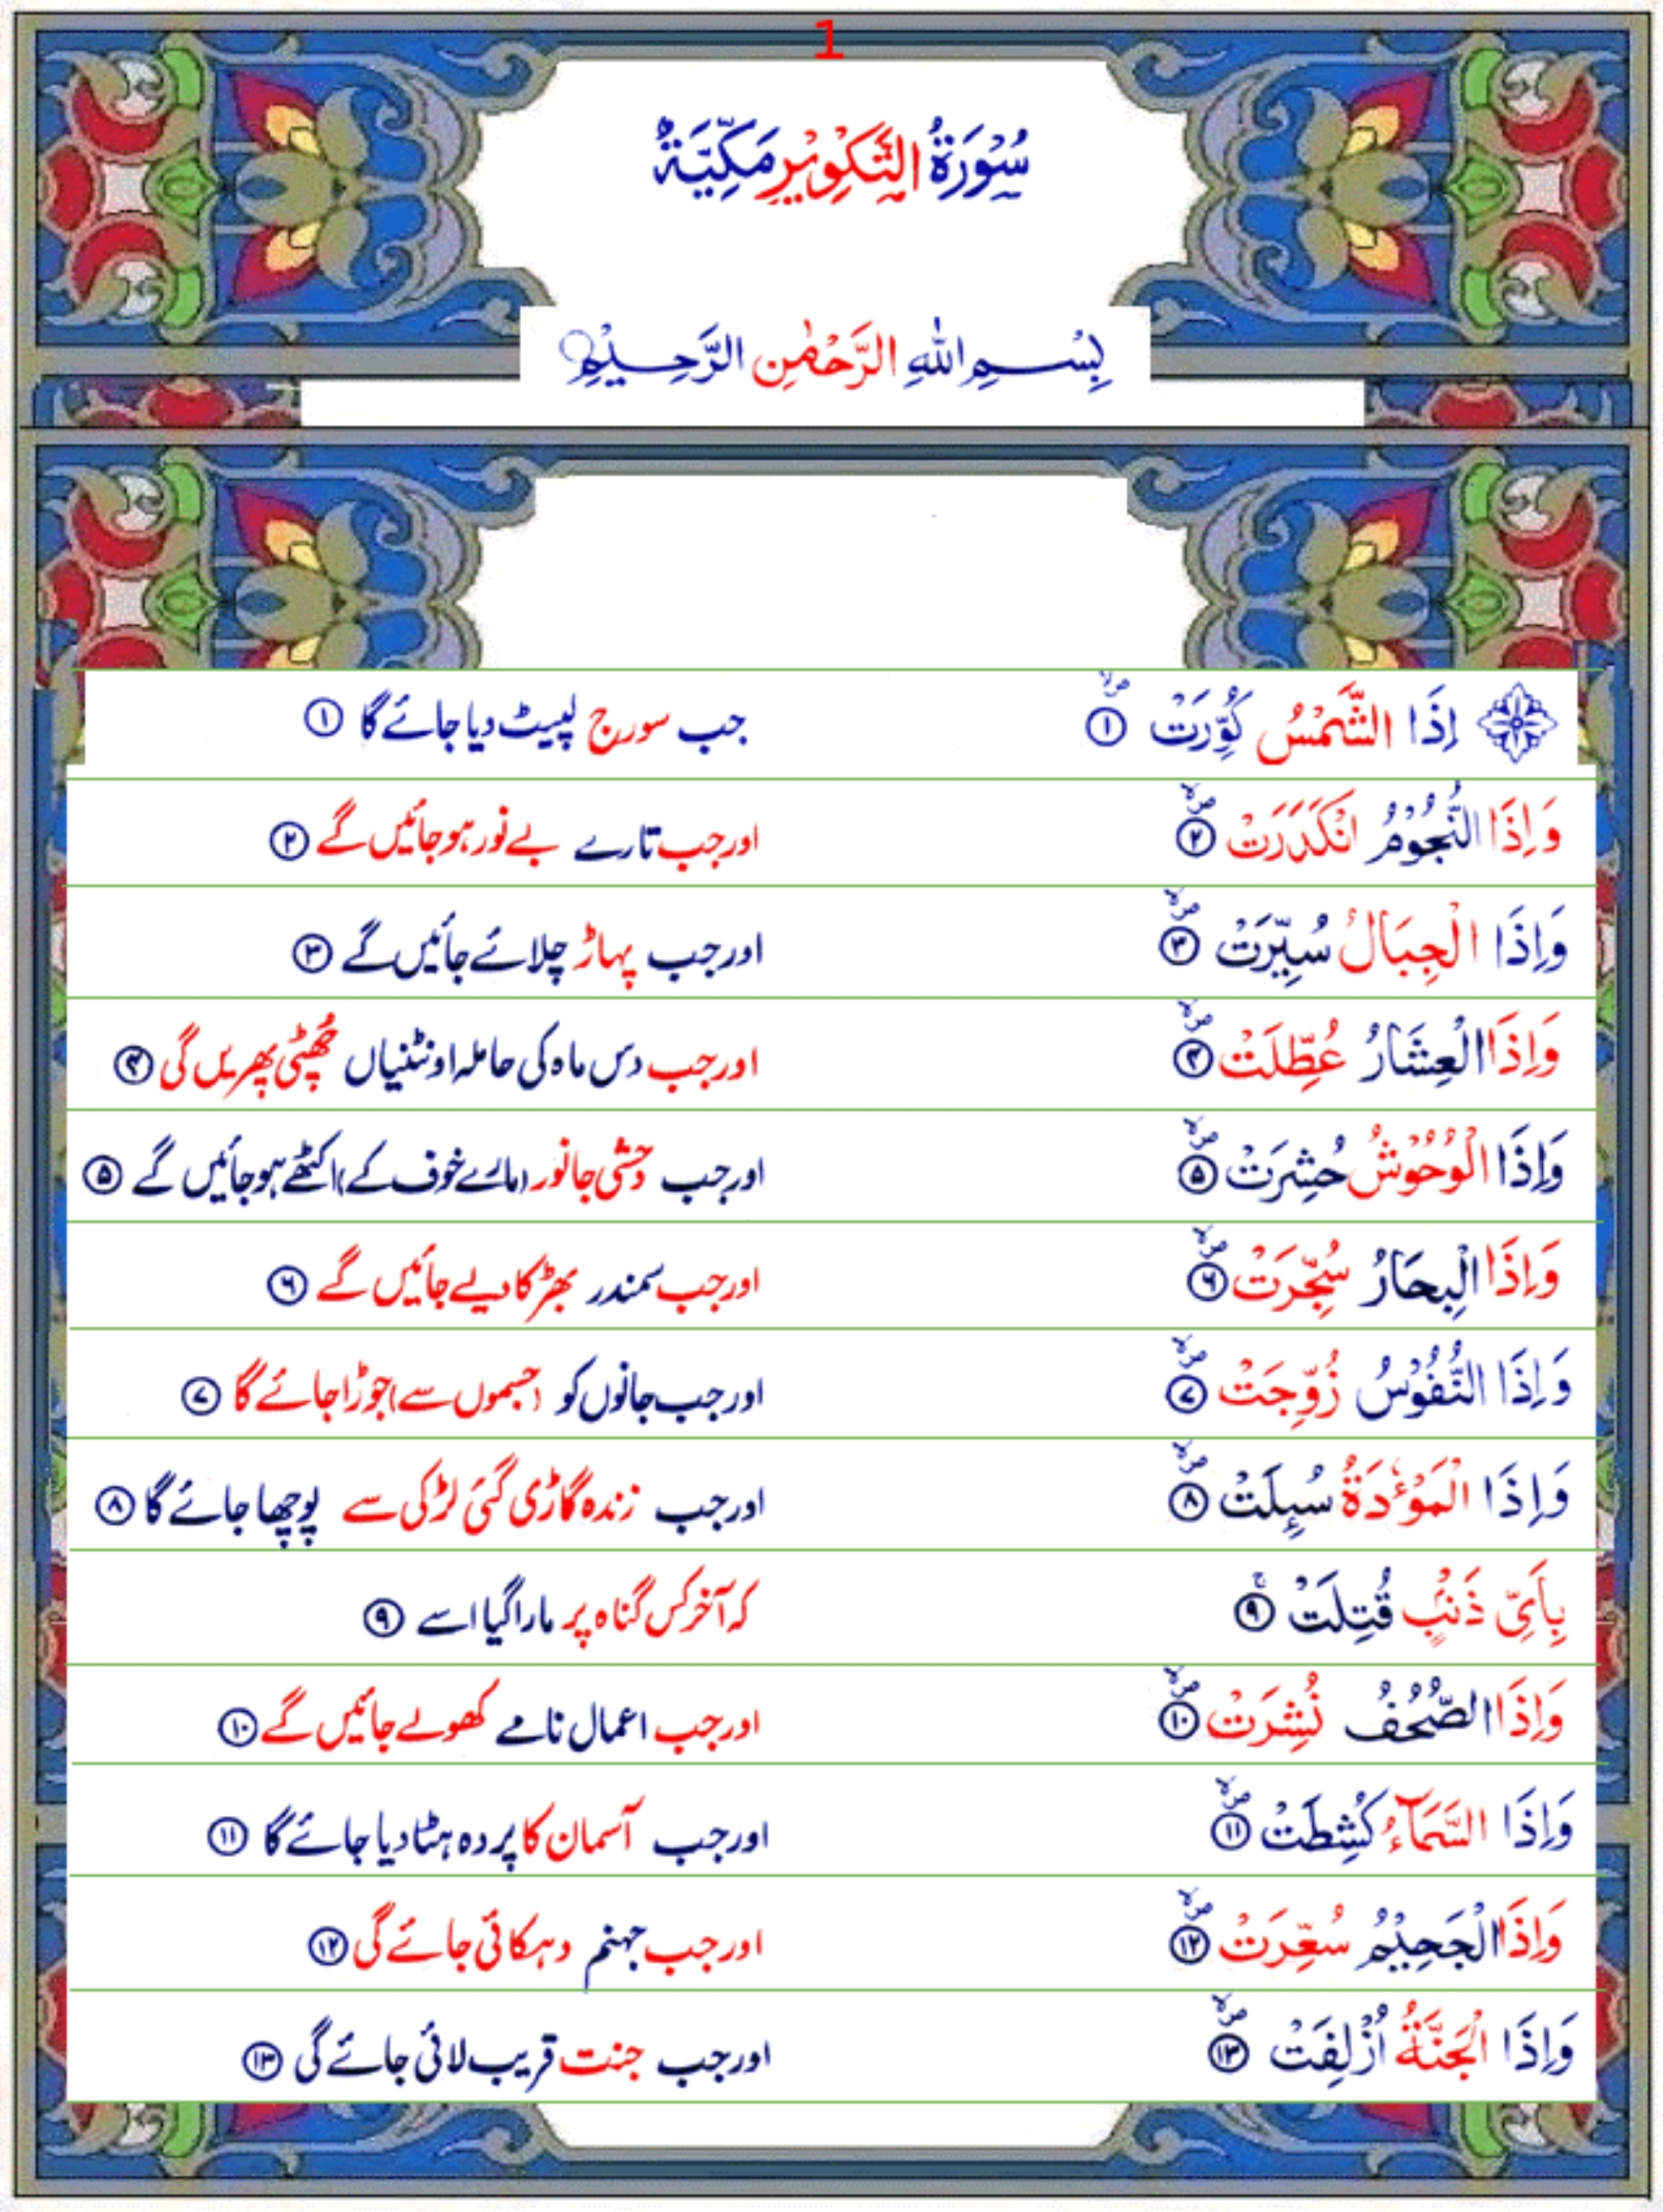 1
سُوْرَةُ التَّكْوِيْرِ مَكِّيَّةٌ
بِسْمِ اللّٰهِ الرَّحْمٰنِ الرَّحِيْمِ
اِذَا الشَّمْسُ كُوِّرَتْ ۪ۙ ① جب سورج لپیٹ دیا جائے گا ①
وَاِذَا النُّجُوْمُ انْكَدَرَتْ ۪ۙ ② اور جب تارے بے نور ہو جائیں گے ②
وَاِذَا الْجِبَالُ سُيِّرَتْ ۪ۙ ③ اور جب پہاڑ چلائے جائیں گے ③
وَاِذَا الْعِشَارُ عُطِّلَتْ ۪ۙ ④ اور جب دس ماہ کی حاملہ اونٹنیاں چُھٹی پھریں گی ④
وَاِذَا الْوُحُوْشُ حُشِرَتْ ۪ۙ ⑤ اور جب وحشی جانور (مارے خوف کے) اکٹھے ہو جائیں گے ⑤
وَاِذَا الْبِحَارُ سُجِّرَتْ ۪ۙ ⑥ اور جب سمندر بھڑکا دیے جائیں گے ⑥
وَاِذَا النُّفُوْسُ زُوِّجَتْ ۪ۙ ⑦ اور جب جانوں کو (جسموں سے) جوڑا جائے گا ⑦
وَاِذَا الْمَوْءٗدَةُ سُىِٕلَتْ ۪ۙ ⑧ اور جب زندہ گاڑی گئی لڑکی سے پوچھا جائے گا ⑧
بِاَىِّ ذَنْۢبٍ قُتِلَتْ ۚ ⑨ کہ آخر کس گناہ پر مارا گیا اسے ⑨
وَاِذَا الصُّحُفُ نُشِرَتْ ۪ۙ ⑩ اور جب اعمال نامے کھولے جائیں گے ⑩
وَاِذَا السَّمَآءُ كُشِطَتْ ۪ۙ ⑪ اور جب آسمان کا پردہ ہٹا دیا جائے گا ⑪
وَاِذَا الْجَحِيْمُ سُعِّرَتْ ۪ۙ ⑫ اور جب جہنم دہکائی جائے گی ⑫
وَاِذَا الْجَنَّةُ اُزْلِفَتْ ۪ۙ ⑬ اور جب جنت قریب لائی جائے گی ⑬